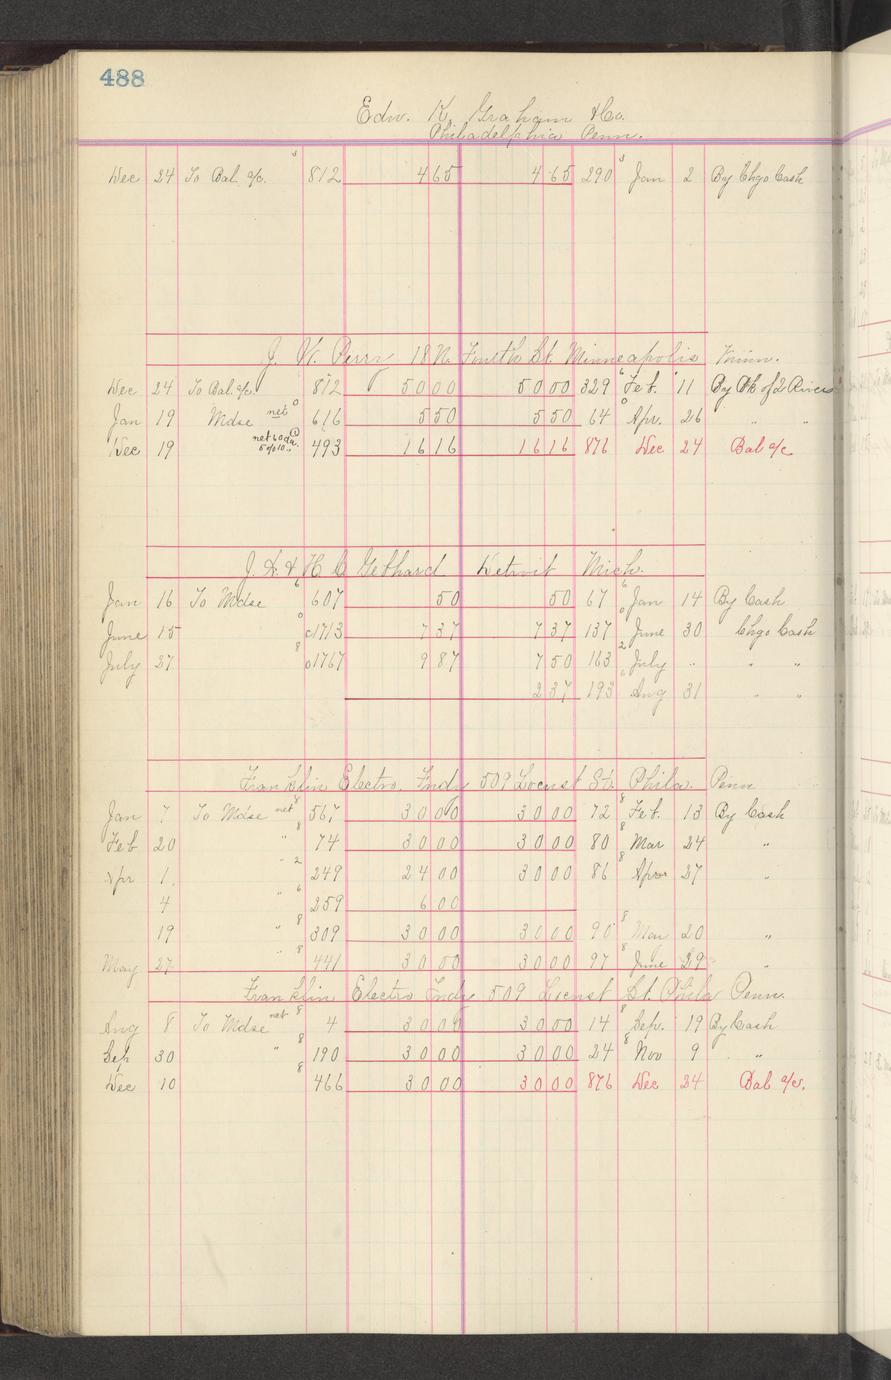 488
Edw. K. Graham & Co.
Philadelphia Penn.
Dec 24 To Bal. a/c. 3 812 4 65 4 65 290 3 Jan 2 By Chgo Cash
J. W. Perry 18 N. Fourth St. Minneapolis Minn.
Dec 24 To Bal. a/c. 812 50 00 50 00 329 6 Feb. 11 By Bk of 2 Rivers
Jan 19 Mdse net 0 616 5 50 5 50 64 0 Apr. 26 " "
Dec 19 net 60 da. 5 %10 " 493 16 16 16 16 876 Dec 24 Bal a/c
H C Gebhard Detroit Mich.
Jan 16 To Mdse 6 607 50 50 67 6 Jan 14 By Cash
June 15 0 1713 7 37 7 37 137 0 June 30 Chgo Cash
July 27 8 1767 9 87 7 50 163 2 July " " "
2 37 193 6 Aug 31 " "
Franklin Electro. Fndy 509 Locust St. Phila. Penn
Jan 7 To Mdse net 8 567 30 00 30 00 72 8 Feb. 13 By Cash
Feb 20 " 8 74 30 00 30 00 80 8 Mar 24 "
Apr 1. " 2 249 24 00 30 00 86 8 Apr 27 "
4 " 6 259 6 00
19 " 8 309 30 00 30 00 90 8 May 20 "
May 27 " 8 441 30 00 30 00 97 8 June 29 "
Franklin Electro Fndy 509 Locust St. Phila Penn.
Aug 8 To Mdse net 8 4 30 00 30 00 14 8 Sep. 19 By Cash
Sep 30 " 8 190 30 00 30 00 24 8 Nov 9 "
Dec 10 8 466 30 00 30 00 876 Dec 24 Bal a/c.